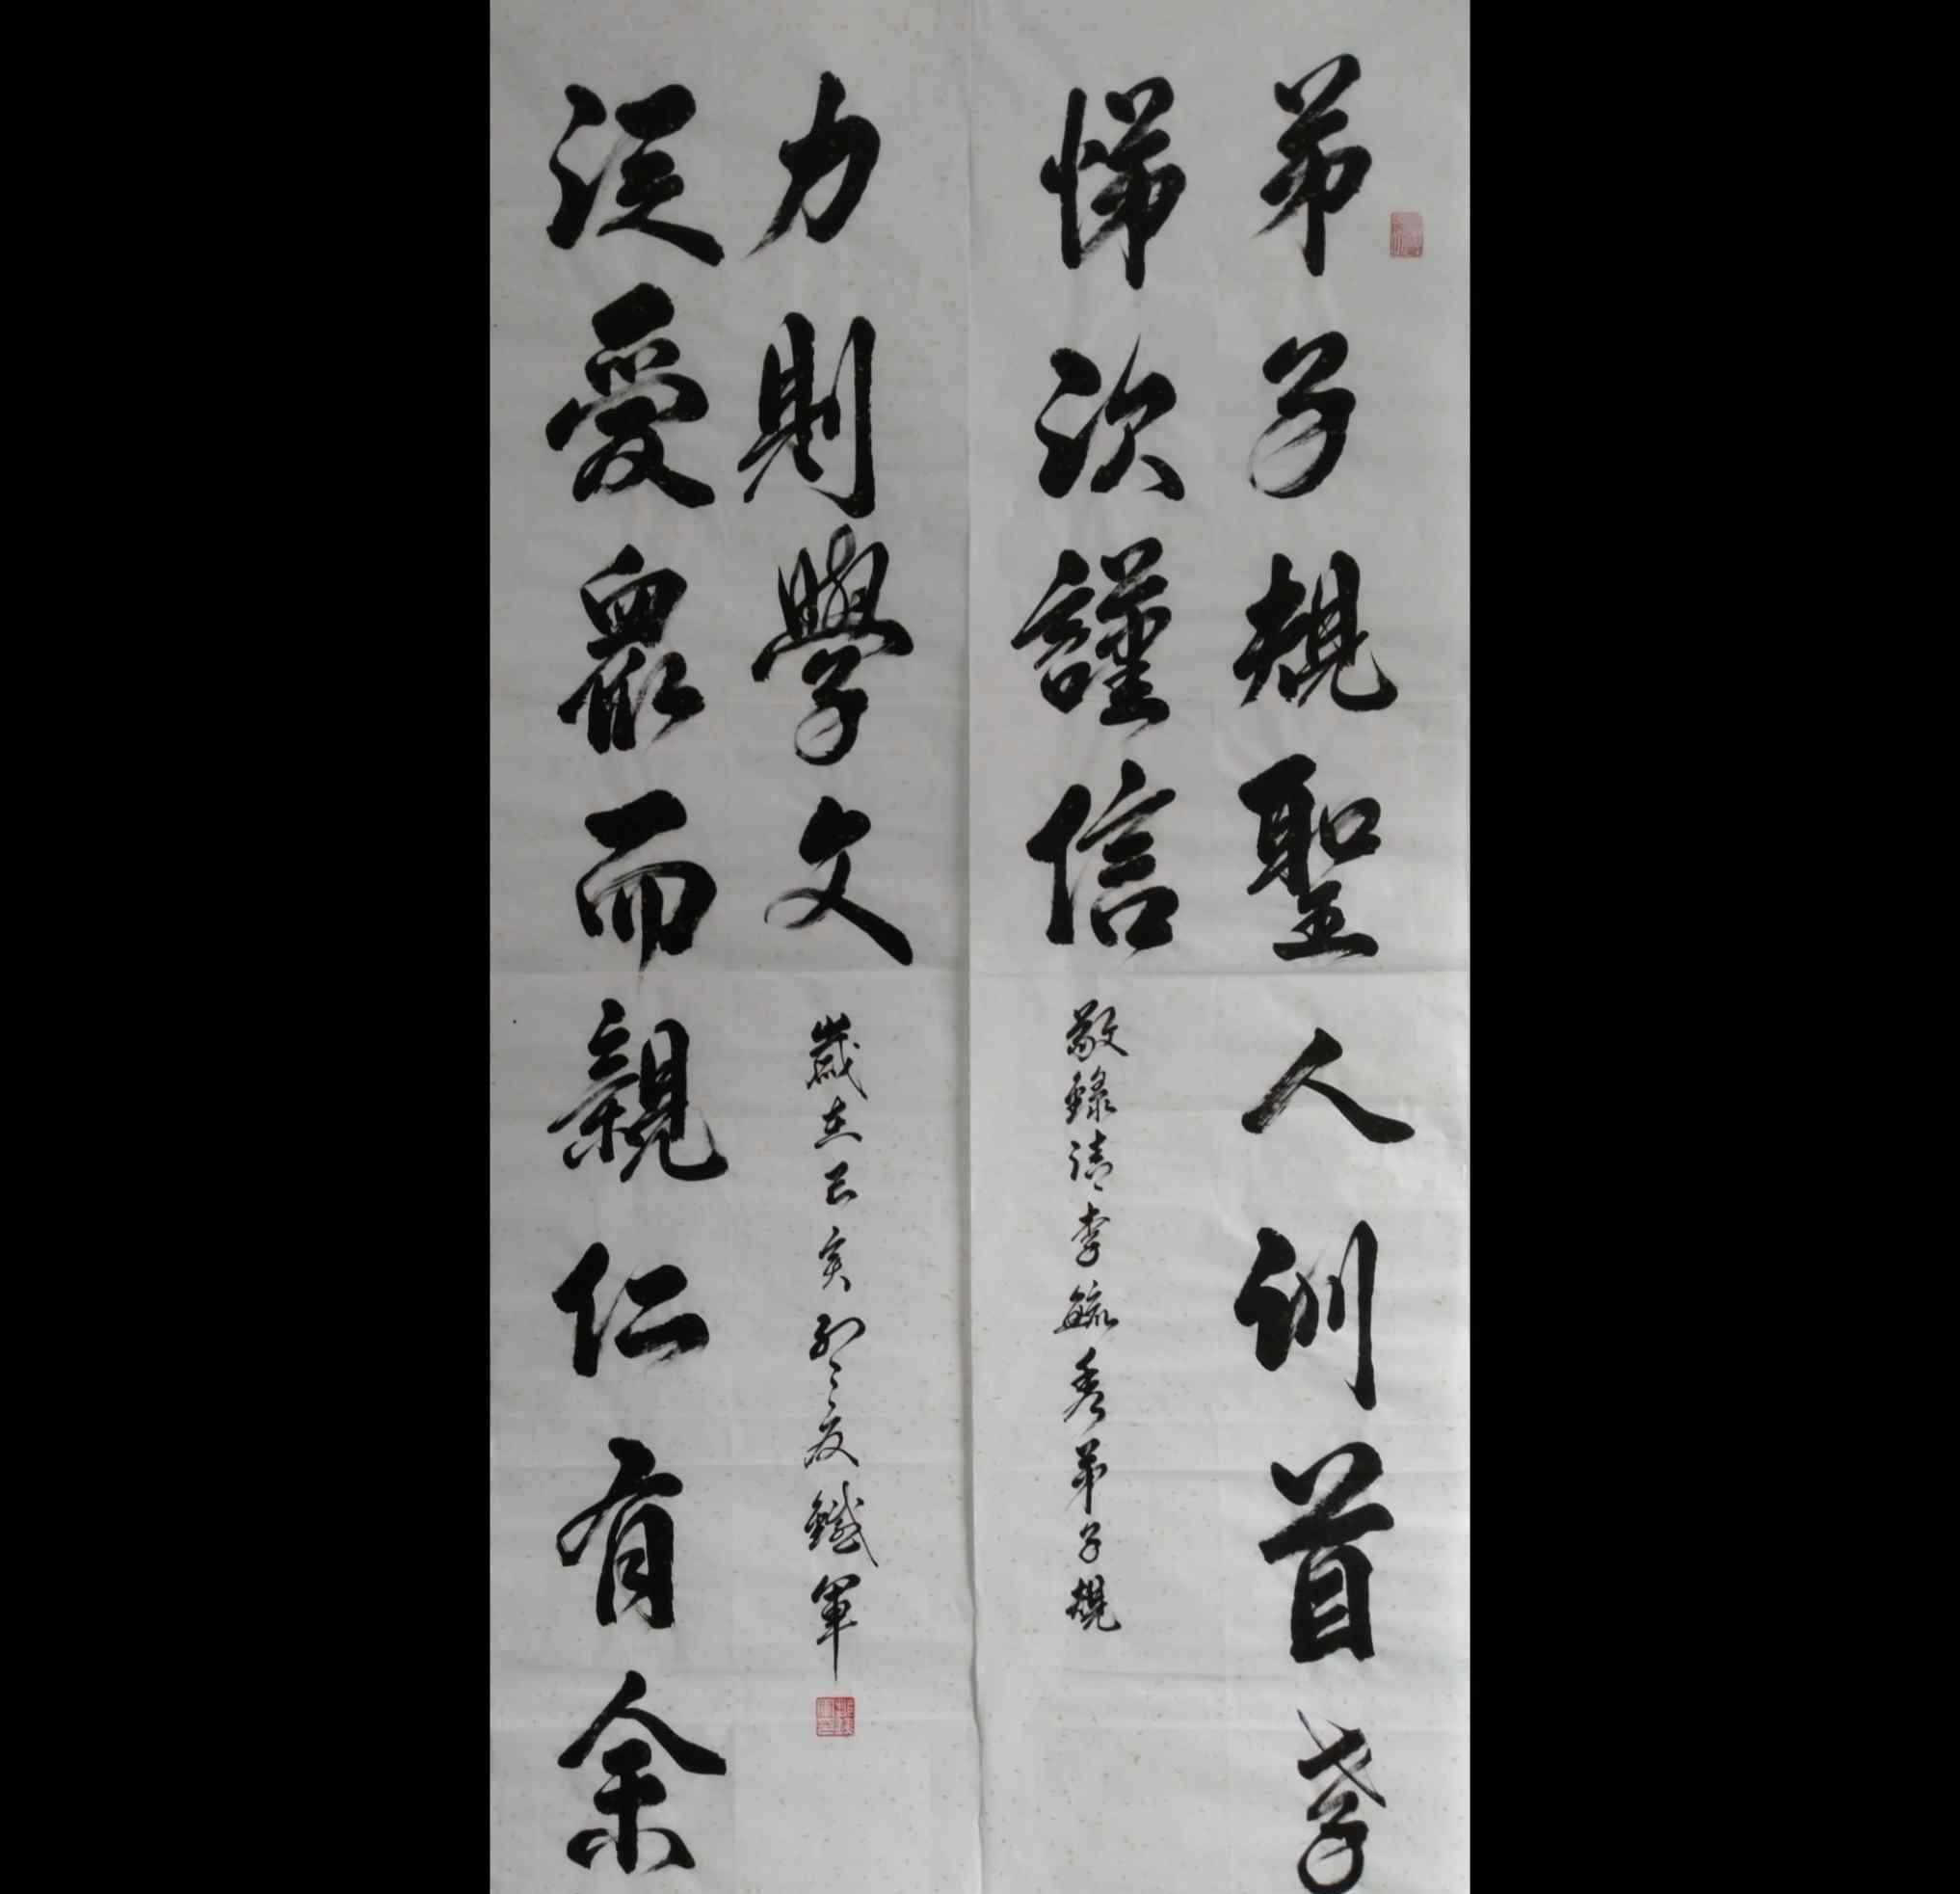 弟子規聖人訓首孝
悌次謹信
敬錄清李毓秀弟子規
泛愛眾而親仁有余
力則學文
歲在己亥 鐵軍